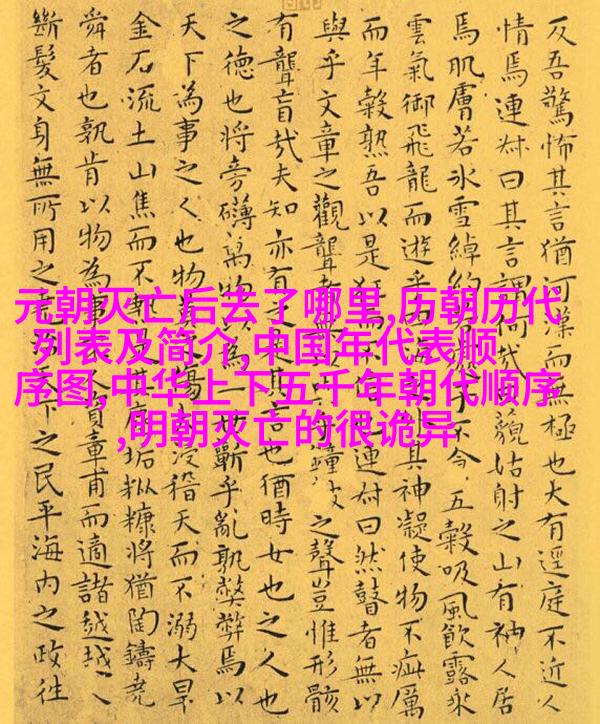 及吾驚怖其言猶河漢而無極也大有逕庭不近人
情焉連叔曰其言謂何哉藐姑射之山有神人居
焉肌膚若冰雪綽約不食五穀吸風飲露乘
雲氣御飛龍而遊乎其神凝使物不疵厲
而年穀熟吾以是狂也連叔曰然瞽者無以
與乎文章之觀聾者無鐘鼓之聲豈惟形骸
有聾盲哉夫知亦有之是其言也猶時女也之人也
之德也將旁礴萬物以世蘄乎亂孰弊弊焉以
天下為事之人也物莫之傷大浸稽天而不溺大旱
金石流土山焦而不垢粃糠將猶陶鑄堯
舜者也孰肯以物為事資章甫而適諸越越人
斷髮文身無所用之堯天下之民平海內之政往
元朝灭亡后去了哪里,历朝历代
列表及简介,中国年代表顺
序图,中华上下五千年朝代顺序
,明朝灭亡的很诡异